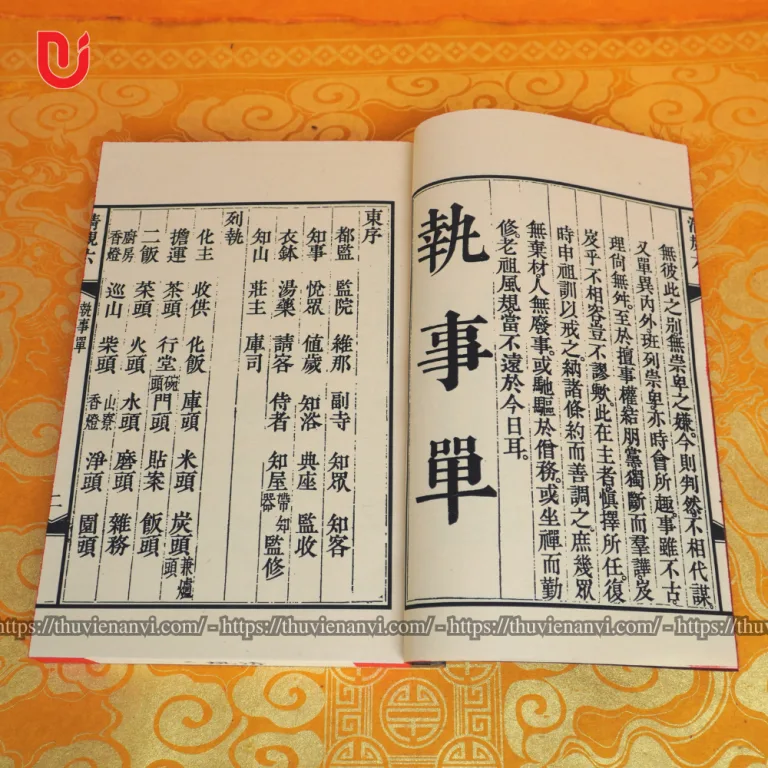 無彼此之別無崇卑之嫌。今則判然。不相代謀
又單異內外。班列崇卑。亦時會所趣。事雖不古。
理尚無舛。至於擅事權。結朋黨。獨斷而羣譁。岌
岌乎不相容。豈不謬歟。此在主者。慎擇所任。復
時申祖訓以戒之。納諸條約而善調之。庶幾眾
無棄材。人無廢事。或馳驅於僧務。或坐禪而勤
修。老祖風規。當不遠於今日耳。
執事單
東序
都監 監院 維那 副寺 知眾 知客
知事 悅眾 值歲 知浴 典座 監收
衣鉢 湯藥 請客 侍者 知屋帶知器 監修
知山 莊主 庫司
列執
化主 收供 化飯 庫頭 米頭 炭頭兼爐頭
擔運 茶頭 行堂碗頭 門頭 貼案 飯頭
二飯 菜頭 火頭 水頭 磨頭 雜務
廚房香燈 巡山 柴頭 山寮香燈 淨頭 園頭
清規六 執事單 二
https://thuvienanvi.com/ - https://thuvienanvi.com/ - https://thuvienanvi.com/ - http